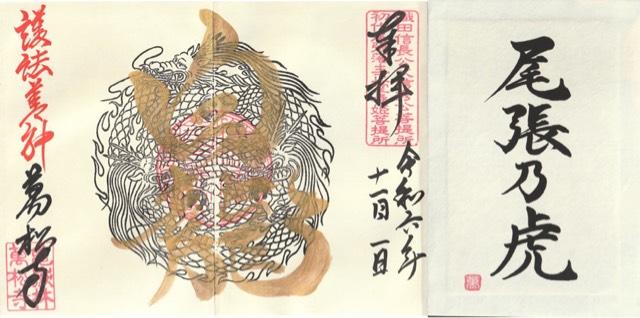 尾張乃虎
織田信長公父信秀公菩提所
奉拝
令和六年
十一月一日
護法善神
萬松寺